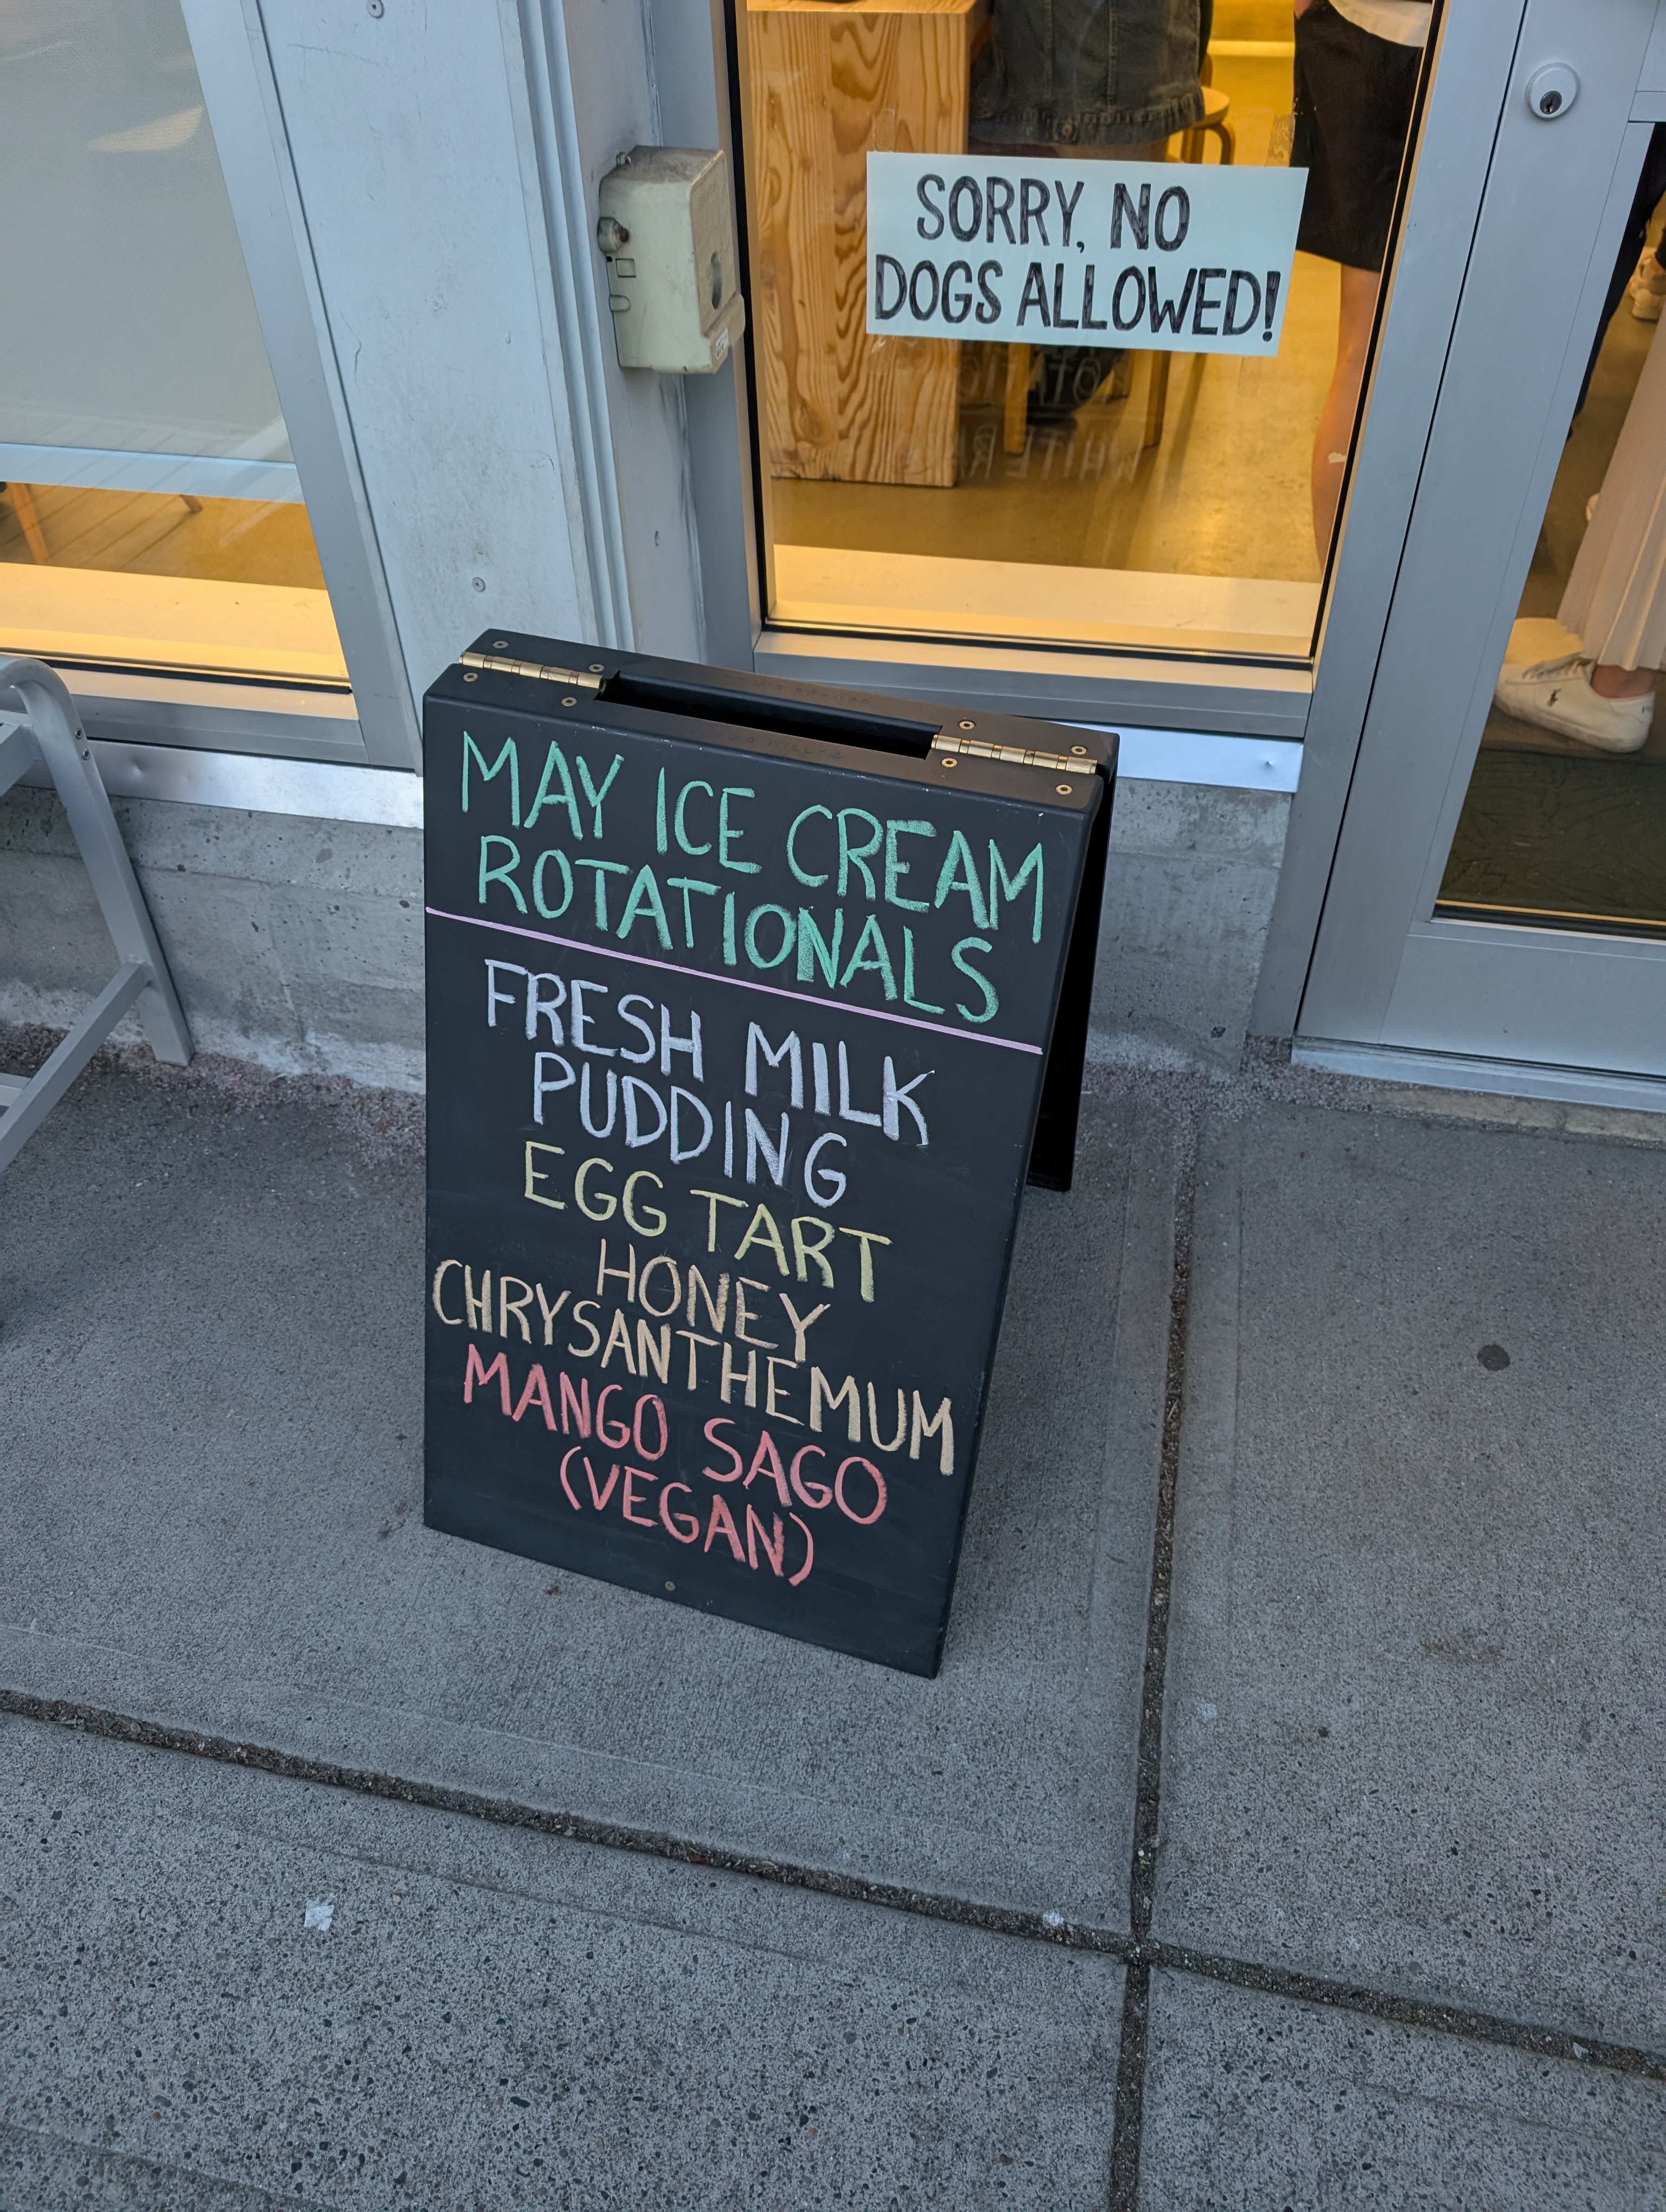 SORRY, NO
DOGS ALLOWED!
MAY ICE CREAM
ROTATIONALS
FRESH MILK
PUDDING
EGG TART
HONEY
CHRYSANTHEMUM
MANGO SAGO
(VEGAN)